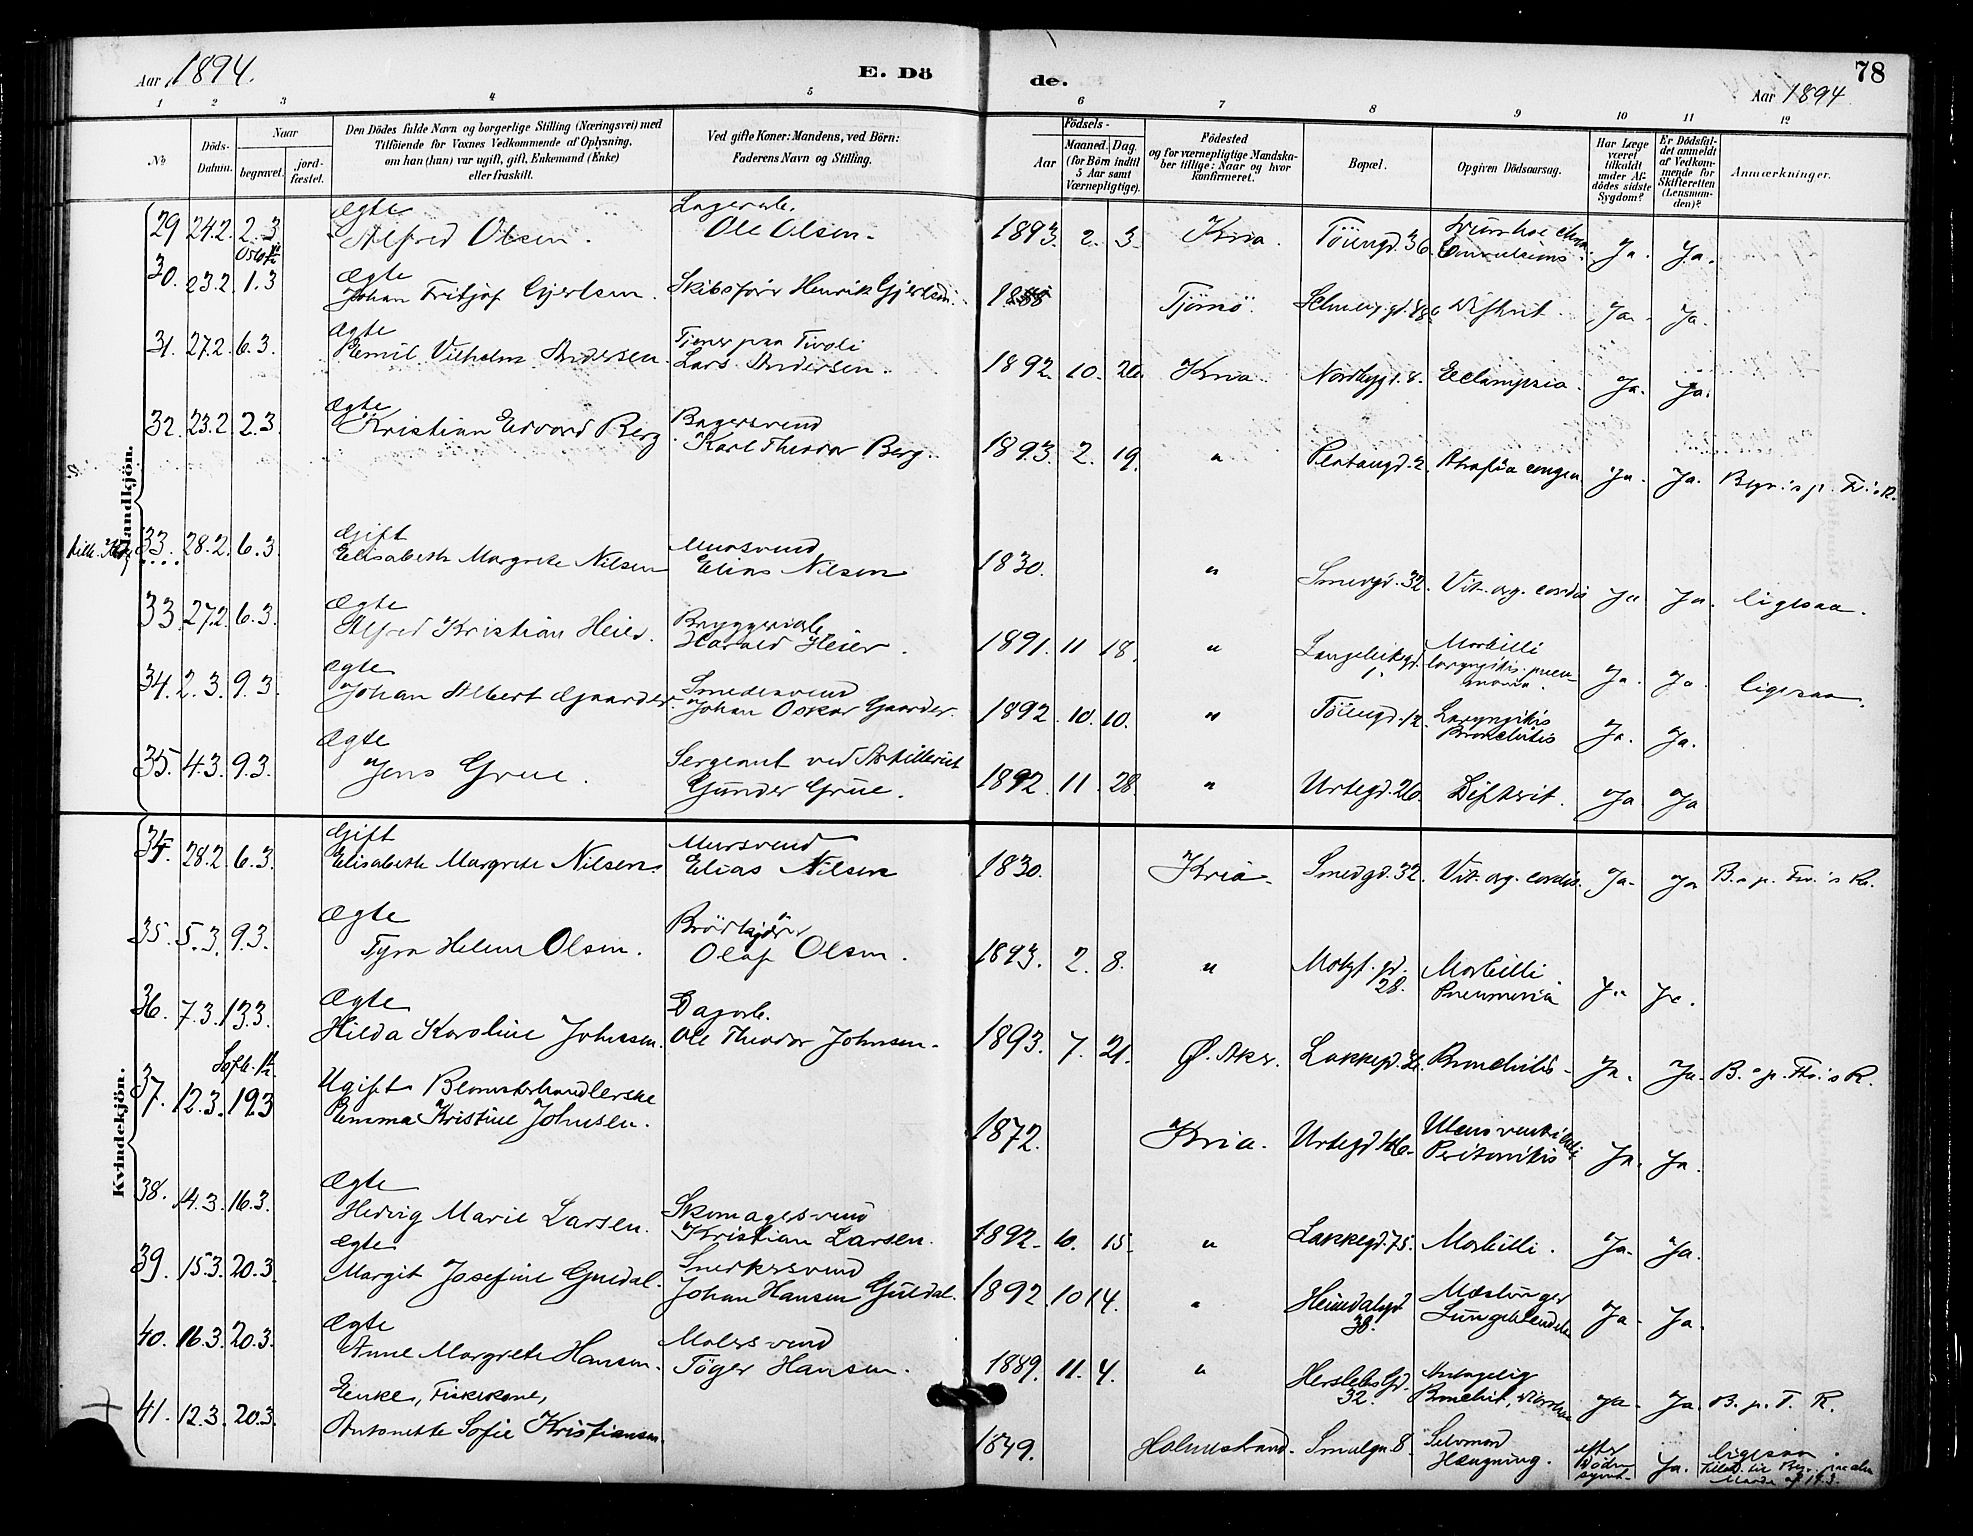 Aar 1894. E. Dö de. Aar 1894 78
1 2 3 4 5 6 7 8 9 10 11 12
No
Döds-Datum.
Naar
begravet.
jord-fæstet.
Den Dödes fulde Navn og borgerlige Stilling (Næringsvei) med
Tilföiende for Voxnes Vedkommende af Oplysning,
om han (hun) var ugift, gift, Enkemand (Enke)
eller fraskilt.
Ved gifte Koner: Mandens, ved Börn:
Faderens Navn og Stilling.
Födsels-
Aar
Maaned. Dag.
(for Börn indtil
5 Aar samt
Værnepligtige).
Födested
og for værnepligtige Mandska-
ber tillige: Naar og hvor
konfirmeret.
Bopæl.
Opgiven Dödsaarsag.
Har Læge
været
tilkaldt
under Af-
dödes sidste
Sygdom?
Er Dödsfal-
det anmeldt
af Vedkom-
mende for
Skifteretten
(Lensman-
den)?
Anmærkninger.
Mandkjön.
29 24.2. 2.3 Ægte Alfred Olsen. Lagerarb. Ole Olsen. 1893. 2. 3. Kria. Töiengd. 36. Ja. Ja.
30. 23.2. 1.3 Ægte Johan Fritjof Gjertsen. Skibsförer Henrik Gjertsen. Tjömö. Difterit. Ja. Ja.
31. 27.2. 6.3. Ægte Emil Vilhelm Andersen. Tjener paa Tivoli Lars Andersen. 1892. 10. 20. Kria. Nordbygd. 8. Eclampsia. Ja. Ja.
32. 23.2. 2.3. Ægte Kristian Edvard Berg. Bagersvend Karl Theodor Berg. 1893. 2. 19. " Platougd. 2. Atrofia congen Ja. Ja.
33. 28.2. 6.3. Gift Elisabeth Margrete Nilsen Mursvend Elias Nilsen 1830. " Smedgd. 32. Vit. org. cordis Ja Ja. ligesaa.
33. 27.2. 6.3. Ægte Alfred Kristian Heier. Bryggeriarb. Harald Heier. 1891. 11 18. " Langeleikegd. 1. Morbilli laryngitis. pneumonia. Ja. Ja. ligesaa.
34. 2.3. 9.3. Ægte Johan Albert Gaarder. Smedesvend Johan Oskar Gaarder. 1892. 10. 10. " Töiengd. 12. Laryngitis Bronchitis Ja. Ja.
35. 4.3. 9.3. Ægte Jens Grue. Sergeant ved Artilleriet Gunder Grue. 1892. 11. 28. " Urtegd. 20. Difterit. Ja Ja
Kvindekjön.
34. 28.2. 6.3. Gift Elisabeth Margrete Nilsen. Mursvend Elias Nilsen 1830. Kria. Smedgd. 32. Vit. org. cordis. Ja. Ja B. p. Fr.'s R.
35. 5.3. 9.3. Ægte Tyra Helene Olsen. Brödkjörer Olaf Olsen. 1893. 2. 8. " Motzf. gd. 28. Morbilli Pneumonia Ja Ja.
36. 7.3. 13.3. Ægte Hilda Karoline Johnsen. Dagarb. Ole Theodor Johnsen. 1893. 7. 21. Ø. Aker. Bronchitis. Ja. Ja. B. p. Fr.'s R.
37. 12.3. 19.3 Ugift Blomsterhandlerske Emma Kristine Johnsen. 1872. Kria. Urtegd 46. Ulcus ventriculi Peritonitis Ja. Ja.
38. 14.3. 16.3. Ægte Hedvig Marie Larsen. Skomagersvend Kristian Larsen. 1892. 10. 15. " Lakkegd. 75. Morbilli. Ja. Ja.
39. 15.3. 20.3. Ægte Margit Josefine Guldal. Snedkersvend Johan Hansen Guldal. 1892. 10 14. " Heimdalsgd 38. Mæslinger Lungebetendelse Ja. Ja.
40. 16.3. 20.3. Ægte Anne Margrete Hansen. Malersvend Töger Hansen. 1889. 11. 4. " Herslebs Gd. 32. Ja. Ja. B. p. T. R.
41. 12.3. 20.3. Enke, Fiskekone, Antonette Sofie Kristiansen. 1849. Holmestrand. Smalgn 8. Selvmord Hængning. efter Ja. ligesaa